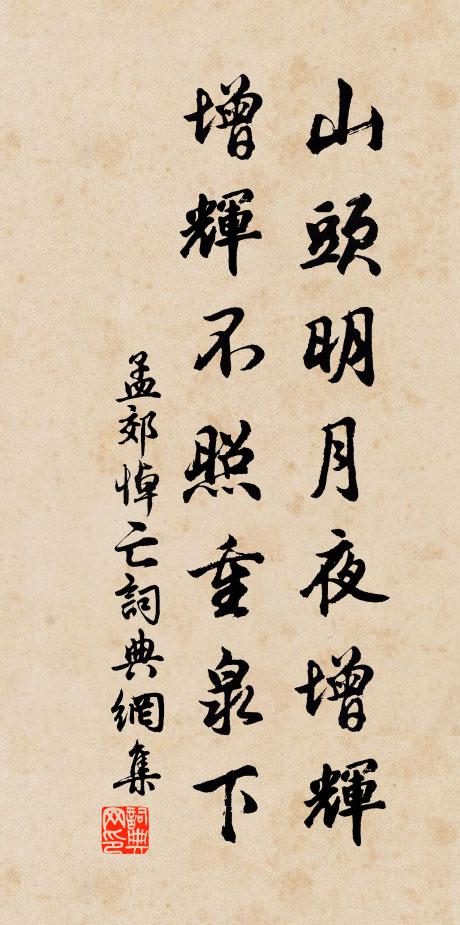 山頭明月夜增輝
增輝不照重泉下
孟郊悼亡詞典網集
詞典网印